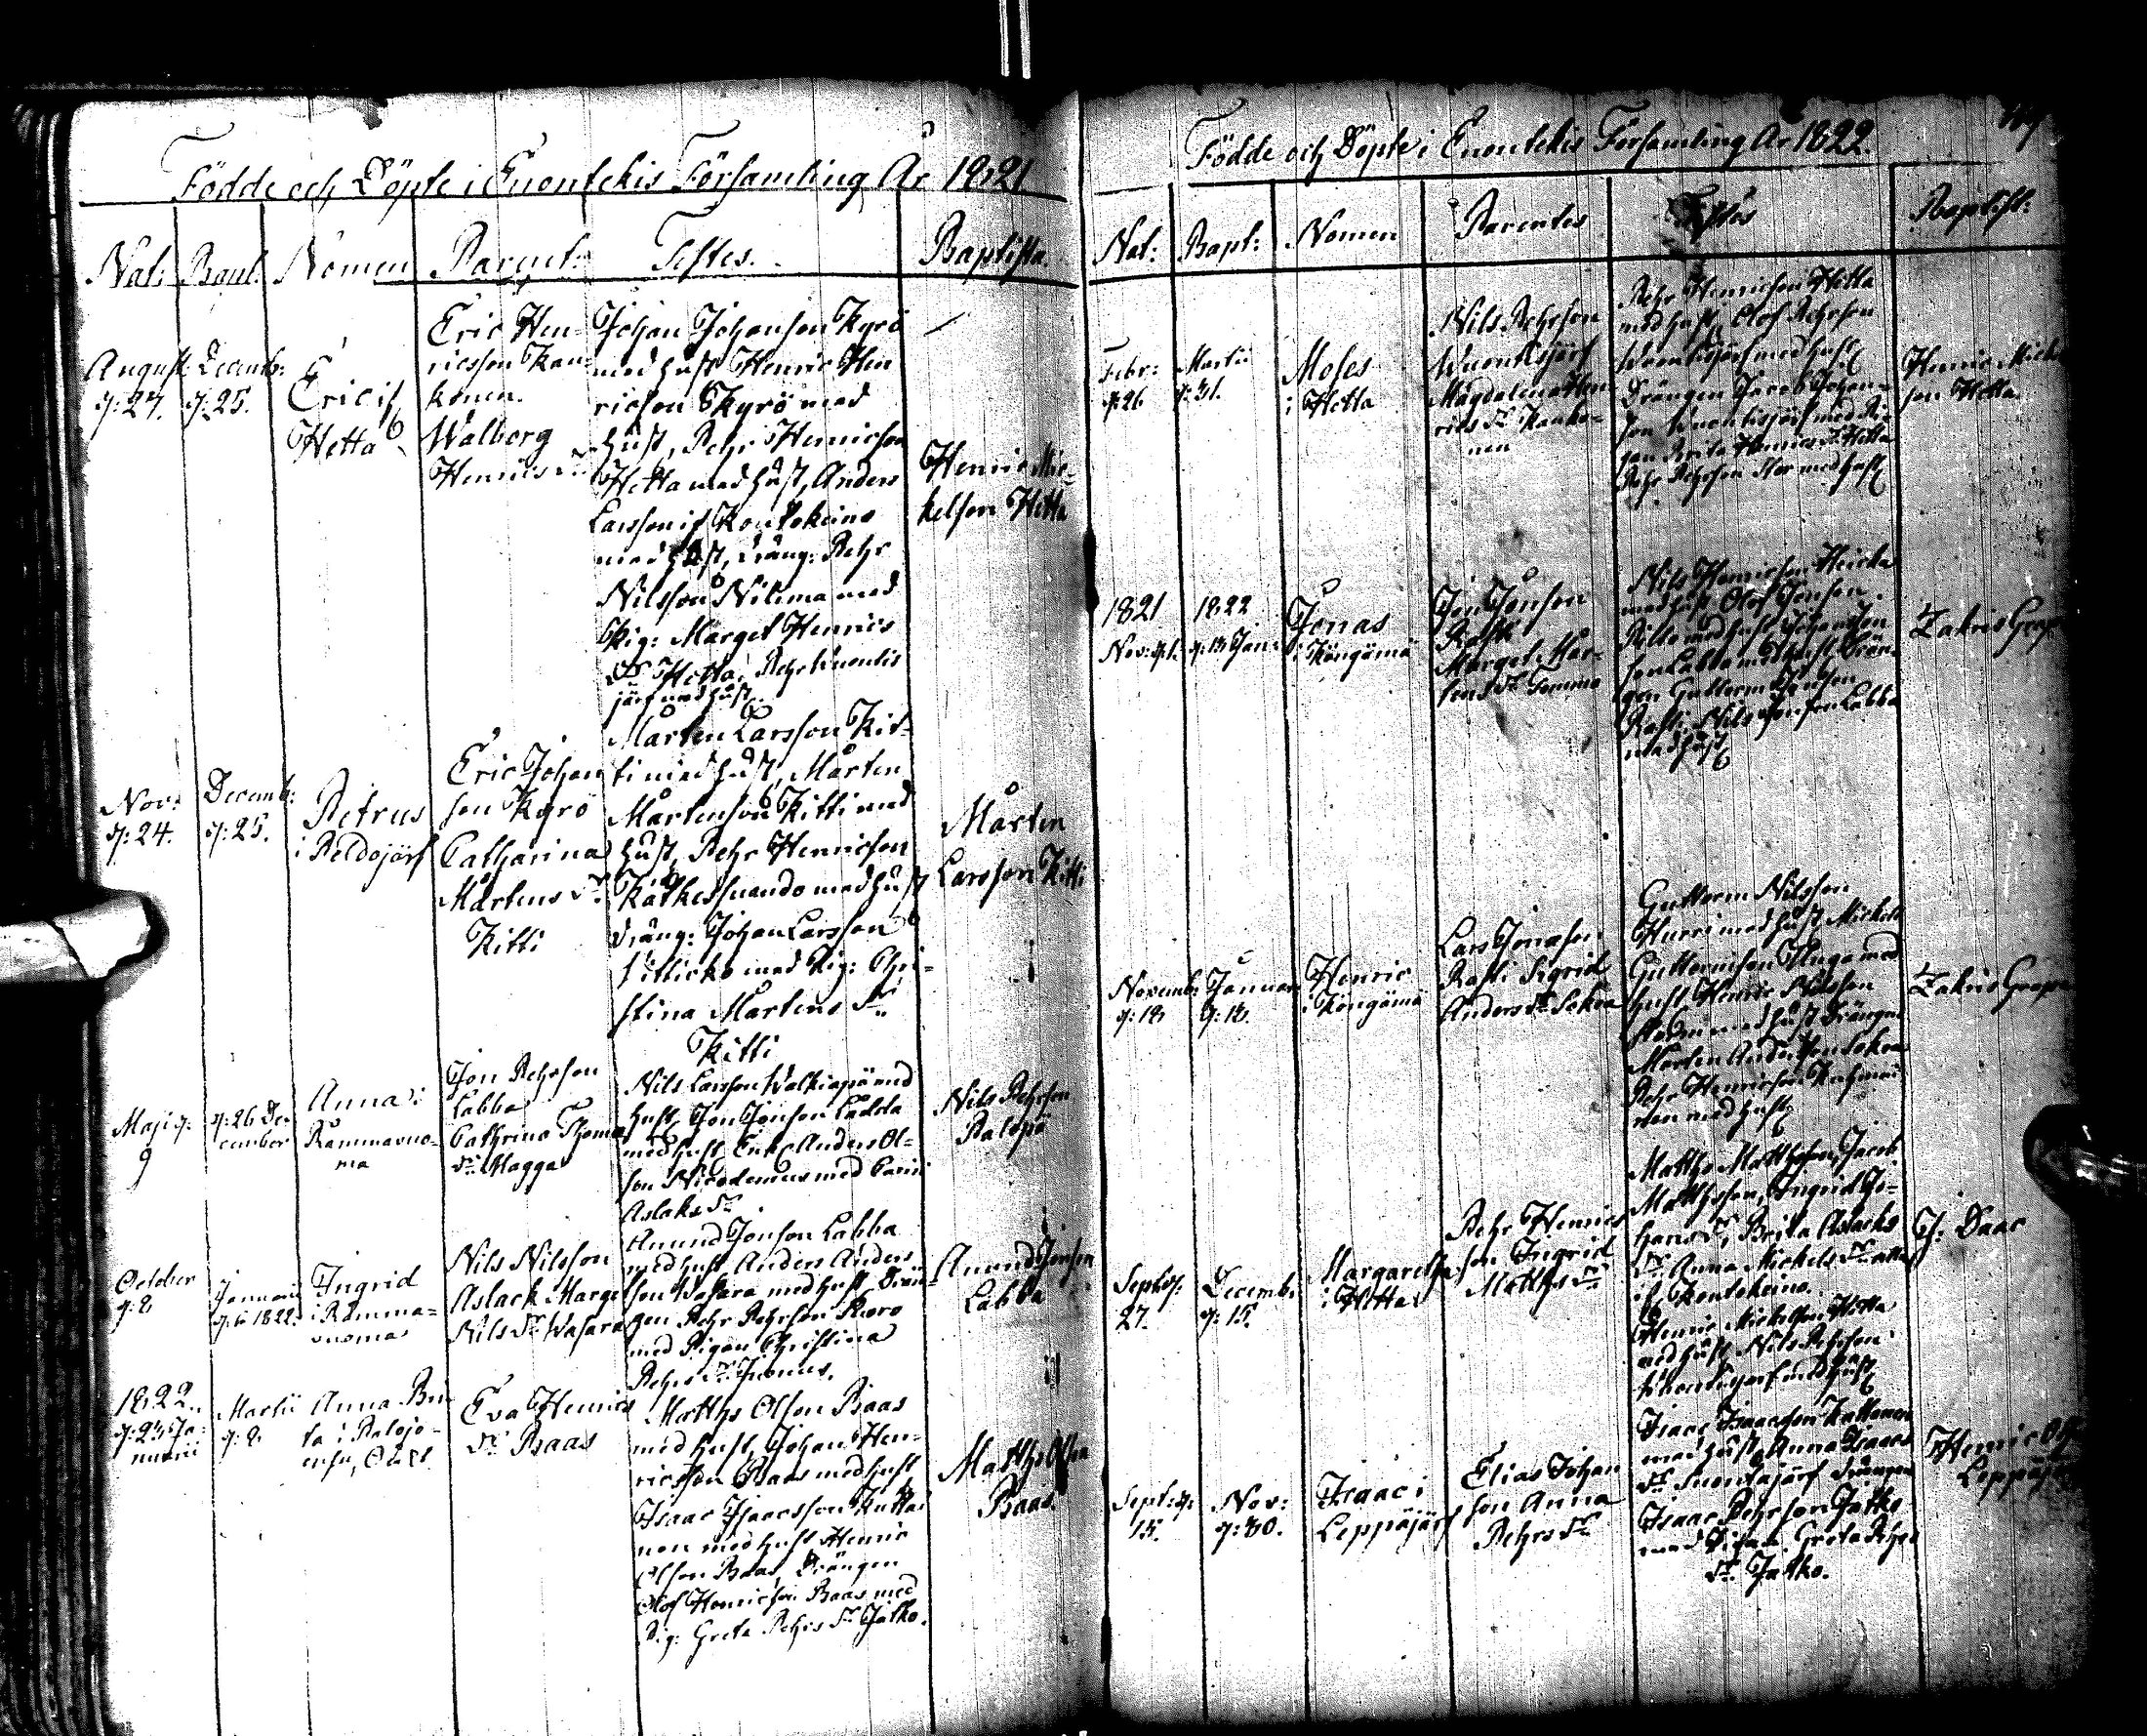 Födde och Döpte i Enontekis Församling År 1821
Nat: Bapt. Nomen Parent: Testes. Baptista.
August: d: 27.
Decemb: d: 25.
Eric if
Hetta
Eric Hen-
ricsson Kau-
konen.
Walborg
Henrics Dr
Johan Johanson Kyrö
med hust, Henric Hen
ricson Kyrö med
hust, Pehr Henricson
Hetta med hust, Anders
Larsson if Koutokeino
med hust, dräng: Pehr
Nilsson Nilima med
Pig: Marget Henrics
Dr Hetta, Pehr Wuontis
järf med hust
Henric Mic-
kelson Hetta
Nov: d: 24.
Decemb: d: 25.
Petrus
i Peldojärf
Eric Johan
son Kyrö
Catharina
Mårtens Dr
Kitti
Mårten Larsson Kit-
ti med hust, Mårten
Mårtenson Kitti med
hust, Pehr Henricson
Kätkessuando med hust
dräng: Johan Larsson
med Pig: Chri-
stina Mårtens Dr
Kitti
Mårten
Larsson Kitti
Maji d:
9
d: 26 De-
cember
Anna i
Rommavuo-
ma
Jon Pehrson
Labba
Cathrina Thomas
Dr Magga
Nils Larsson Walkiapä med
hust, Jon Jonson Labba
med hust, Enkl Anders Ol-
son Nicodemus med Carin
Aslaks Dr
Nils Pehrson
Palopä
October
d: 8
Januarii
d: 6 1822.
Ingrid
i Romma-
vuoma
Nils Nilsson
Aslack Marget
Nils Dr Wasara
Amund Jonson Labba
med hust, Anders Anders
son Wasara med hust, Drän
gen Pehr Pehrson
med Pigan Christina
Pehrs Dr
Amund Jonson
Labba
1822.
d: 23 Ja-
nuarii
Martii
d: 2.
Anna Bri
ta i Palojo-
ensu, Oäkt
Eva Henrics
Dr Baas
Matths Olson Baas
med hust, Johan Hen-
ricsson Baas med hust
Isaac Isaacsson Kutta
nen med hust Henric
Olson Baas, Drängen
Olof Henricson Baas med
Pig: Greta Pehrs Dr Jatko.
Matths Olson
Baas.
Födde och Döpte i Enontekis Församling År 1822.
Nat: Bapt: Nomen Parentes Testes Baptist:
Febr:
d: 26
Martii
d: 31.
Moses
i Hetta
Nils Pehrson
Wuontisjärf
Magdalena Hen
rics Dr Kauko-
nen
Pehr Henricson Hetta
med hust, Olof Pehrson
Wuontisjärf med hust
Drängen Jacob Johan-
son Wuontisjärf med Pi-
gan Brita Henrics Dr Hetta
Pehr Pehrson med hust
Henric Mickel
son Hetta
1821
Nov: d: 1.
1822
d: 13 Jan:
Jonas
i Köngämä
Jon Jonson
Rasti
Marget Mår-
tens Dr Somma
Nils Henricson Heicka
med hust Olof Jonson
med hust Johan Jon
son Labba med hust Drän-
gen Guttorm Jonson
Rasti, Nils Jonson Labba
med hust
Zakris Grape
Novemb:
d: 18
Januar
d: 13.
Henric
i Köngämä
Lars Jonason
Rasti Sigrid
Anders Dr Sokra
Guttorm Nilsson
Hurri med hust Mickel
Guttormson med
hust Henric Nilsson
med hust Drängen
Mårten Anderson Sokra
Pehr Henricson
med hust
Zakris Grape
Sept: d:
27.
Decemb:
d: 15.
Margaretha
i Hetta
Pehr Henrics
son Ingrid
Matths Dr
Matths Matthsson, Jacob
Matthsson, Ingrid Jo-
hans Dr, Brita Aslacks
Dr Anna Mickels Dr alla
if Koutokeino.
Henric Mickelson Hetta
med hust Nils Pehrson
Wuontisjärf med hust
J: Daae
Sept: d:
15.
Nov:
d: 30.
Isaac i
Leppäjärf
Elias Johan
son Anna
Pehrs Dr
Isaac Isaacson Kuttanen
med hust, Anna Isaacs
Dr Suontajärf Drängen
Isaac Pehrson Jatko
med Pigan Greta Pehrs
Dr Jatko.
Henric
Leppäjärf